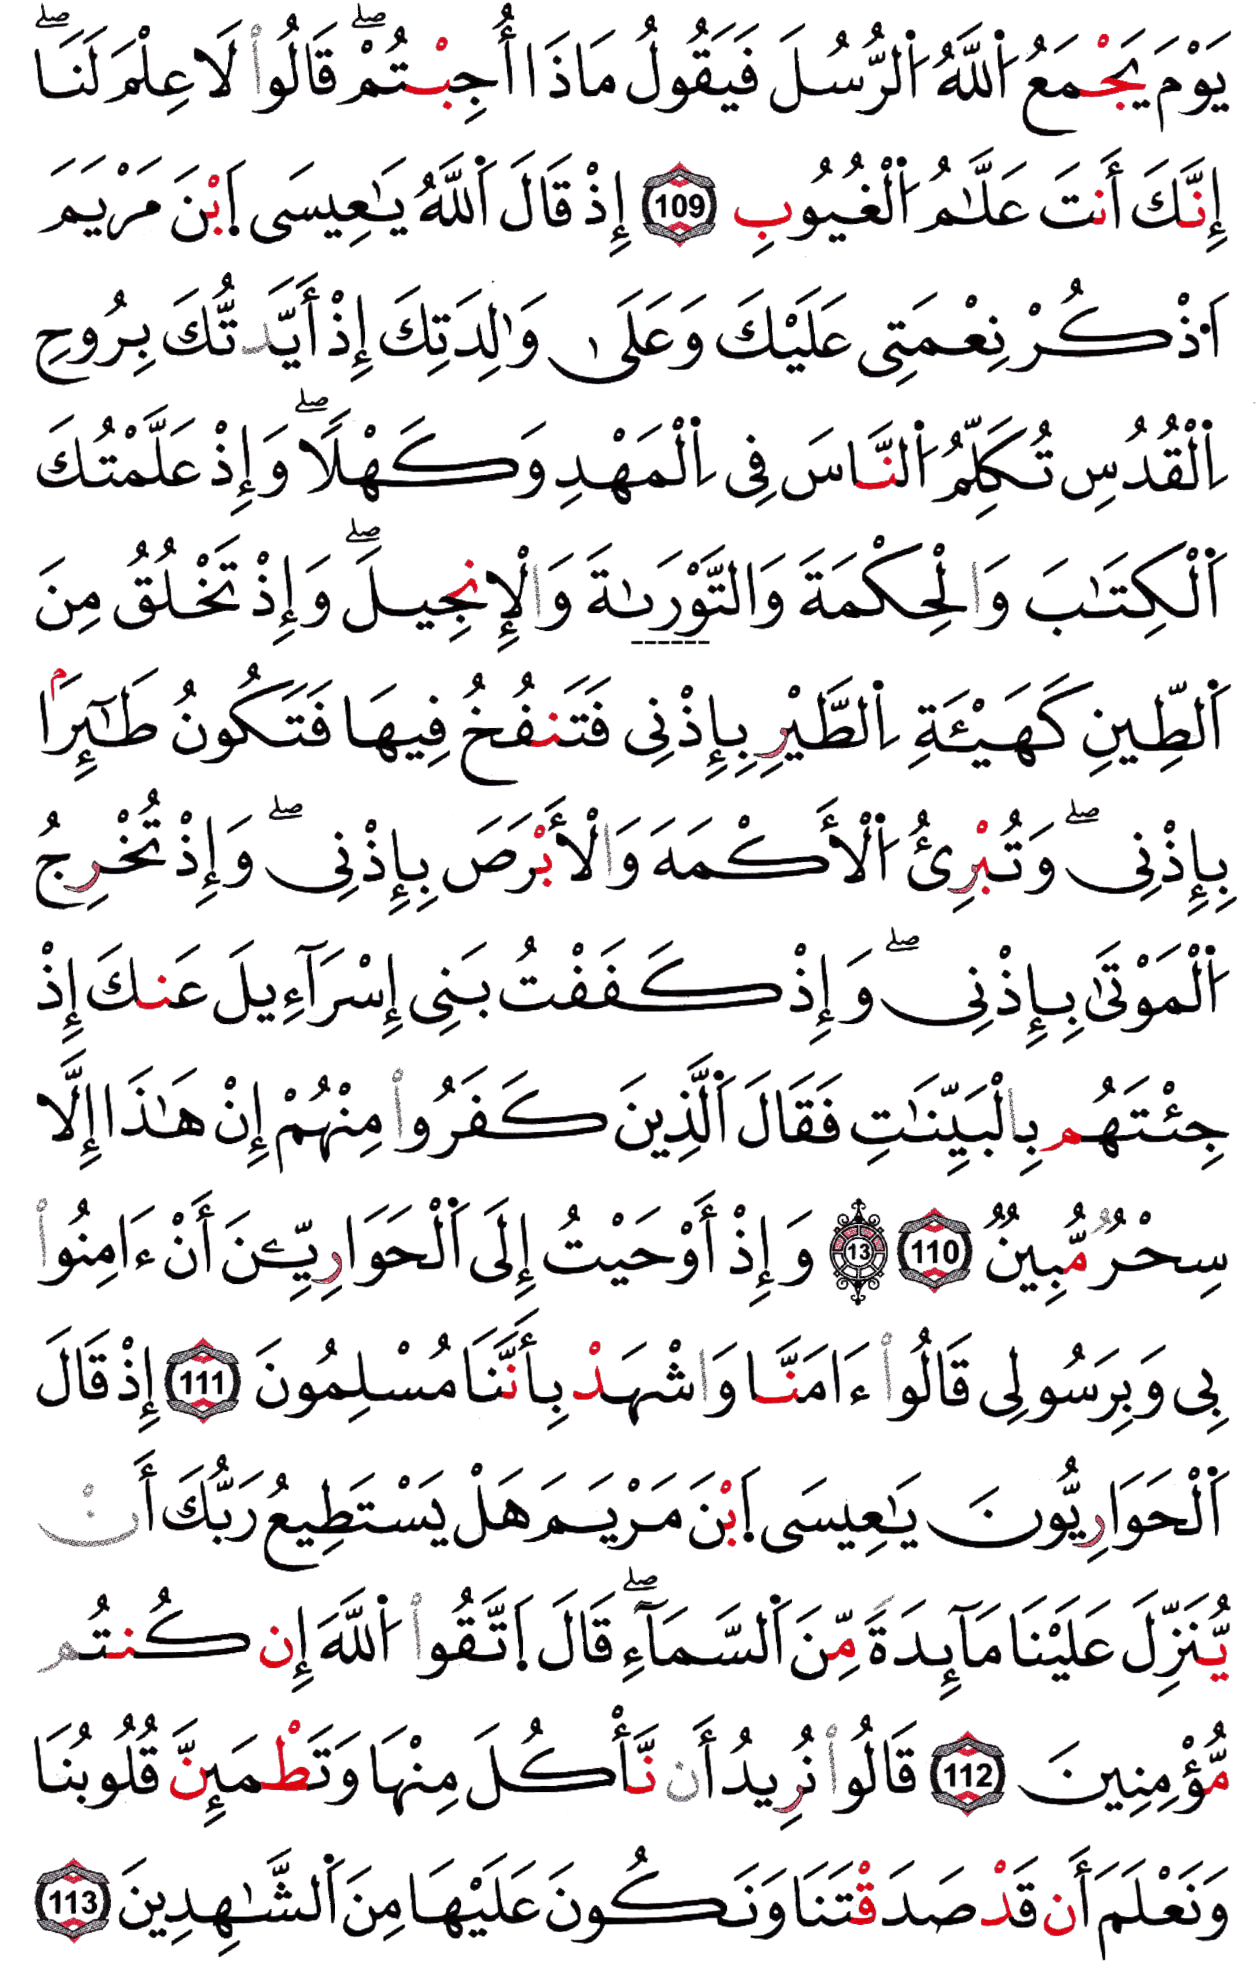 يَوْمَ يَجْمَعُ اُ۬للَّهُ اُ۬لرُّسُلَ فَيَقُولُ مَاذَا أُجِبْتُمْۖ قَالُواْ لَا عِلْمَ لَنَاۖ
إِنَّكَ أَنتَ عَلَّٰمُ اُ۬لْغُيُوبِ 109 إِذْ قَالَ اَ۬للَّهُ يَٰعِيسَى اَ۪بْنَ مَرْيَمَ
اَ۟ذْكُرْ نِعْمَتِى عَلَيْكَ وَعَلَىٰ وَٰلِدَتِكَ إِذْ أَيَّدتُّكَ بِرُوحِ
اِ۬لْقُدُسِ تُكَلِّمُ اُ۬لنَّاسَ فِى اِ۬لْمَهْدِ وَكَهْلًاۖ وَإِذْ عَلَّمْتُكَ
اَ۬لْكِتَٰبَ وَالْحِكْمَةَ وَالتَّوْرَىٰةَ وَالْإِنجِيلَۖ وَإِذْ تَخْلُقُ مِنَ
اَ۬لطِّينِ كَهَيْـَٔةِ اِ۬لطَّيْرِ بِإِذْنِى فَتَنفُخُ فِيهَا فَتَكُونُ طَٰٓئِرَۢا
بِإِذْنِىۖ وَتُبْرِئُ اُ۬لْأَكْمَهَ وَالْأَبْرَصَ بِإِذْنِىۖ وَإِذْ تُخْرِجُ
اُ۬لْمَوْتَىٰ بِإِذْنِىۖ وَإِذْ كَفَفْتُ بَنِى إِسْرَآءِيلَ عَنكَ إِذْ
جِئْتَهُم بِالْبَيِّنَٰتِ فَقَالَ اَ۬لَّذِينَ كَفَرُواْ مِنْهُمْ إِنْ هَٰذَا إِلَّا
سِحْرٌ مُّبِينٌ 110 13 وَإِذْ أَوْحَيْتُ إِلَى اَ۬لْحَوَارِيِّـۧنَ أَنْ ءَامِنُواْ
بِى وَبِرَسُولِى قَالُواْ ءَامَنَّا وَاشْهَدْ بِأَنَّنَا مُسْلِمُونَ 111 إِذْ قَالَ
اَ۬لْحَوَارِيُّونَ يَٰعِيسَى اَ۪بْنَ مَرْيَمَ هَلْ يَسْتَطِيعُ رَبُّكَ أَنْ
يُّنَزِّلَ عَلَيْنَا مَآئِدَةً مِّنَ اَ۬لسَّمَآءِۖ قَالَ اَ۪تَّقُواْ اُ۬للَّهَ إِن كُنتُم
مُّؤْمِنِينَ 112 قَالُواْ نُرِيدُ أَن نَّأْكُلَ مِنْهَا وَتَطْمَئِنَّ قُلُوبُنَا
وَنَعْلَمَ أَن قَدْ صَدَقْتَنَا وَنَكُونَ عَلَيْهَا مِنَ اَ۬لشَّٰهِدِينَ 113